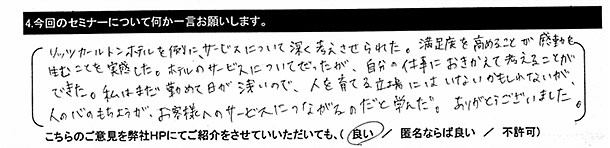 4.今回のセミナーについて何か一言お願いします。
リッツカールトンホテルを例に、サービスについて深く考えさせられた。満足度を高めることが感動を
生むことを実感した。ホテルのサービスについてだったが、自分の仕事におきかえて考えることが
できた。私はまだ勤めて日が浅いので、人を育てる立場にはいないかもしれないが、
人の心のもちようが、お客様へのサービスにつながるのだと学んだ。ありがとうございました。
こちらのご意見を弊社HPにてご紹介をさせていいただいても、( 良い / 匿名ならば良い / 不許可)